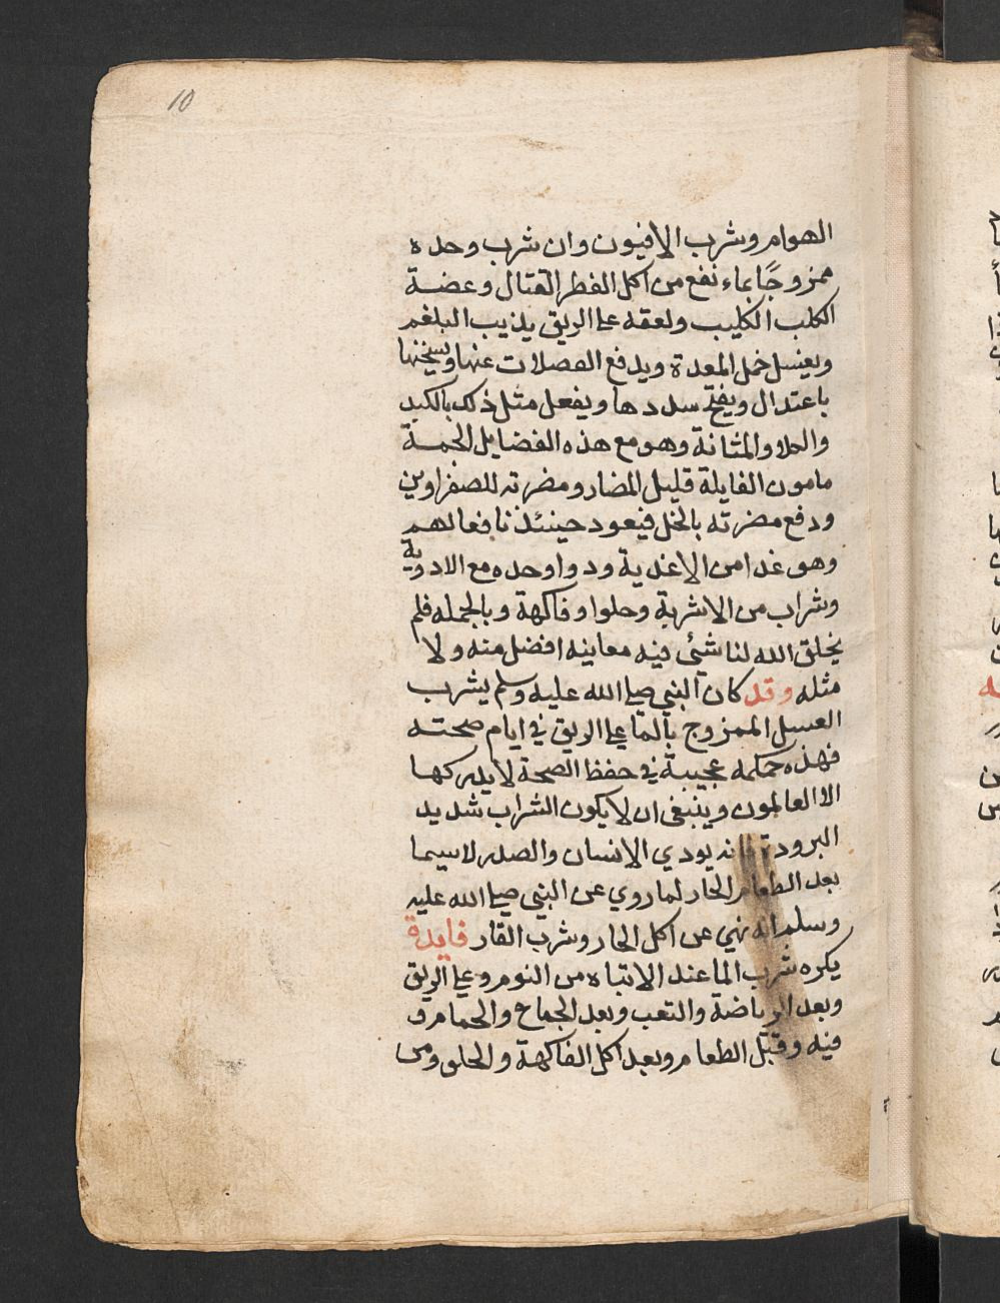 10
الهوام وشرب الافيون وان شرب وحده
ممزوجًا بماء نفع من اكل الفطر القتال وعضة
الكلب الكليب ولعقه على الريق يذيب البلغم
ويغسل خمل المعدة ويدفع الفضلات عنها ويسخنها
باعتدال ويفتح سددها ويفعل مثل ذلك بالكبد
والكلا والمثانة وهو مع هذه الفضايل الجمة
مامون الغايلة قليل المضار ومضرته للصفراوين
ودفع مضرته بالخل فيعود حينئذ نافعا لهم
وهو غدا من الاغدية ودوا وحده مع الادوية
وشراب من الاشربة وحلوا وفاكهة وبالجمله فلم
يخلق الله لنا شئ فيه معاينه افضل منه ولا
مثله وقد كان النبي صلى الله عليه وسلم يشرب
العسل الممزوج بالما على الريق في ايام صحته
فهذه حكمه عجيبة في حفظ الصحة لا يدركها
الا العالمون وينبغي ان لا يكون الشراب شديد
البرودة فانه يودي الانسان والصدر لاسيما
بعد الطعام الحار لما روي عن النبي صلى الله عليه
وسلم انه نهي عن اكل الحار وشرب القار فايدة
يكره شرب الما عند الانتباه من النوم وعلى الريق
وبعد الرياضة والتعب وبعد الجماع والحمام وف
فيه وقبل الطعام وبعد اكل الفاكهة والحلو ومن